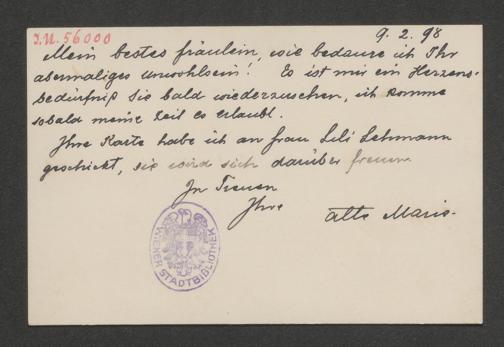 I.N. 56000
9. 2. 98
Mein bestes fräulein, wie bedaure ich Ihr
abermaliges Unwohlsein! Es ist mir ein Herzens-
bedürfniß Sie bald wiederzusehen, ich komme
sobald meine Zeit es erlaubt.
Ihre Karte habe ich an frau Lili Lehmann
geschickt, sie wird sich darüber freuen
In Treuen
Ihre alte Marie.
WIENER STADTBIBLIOTHEK